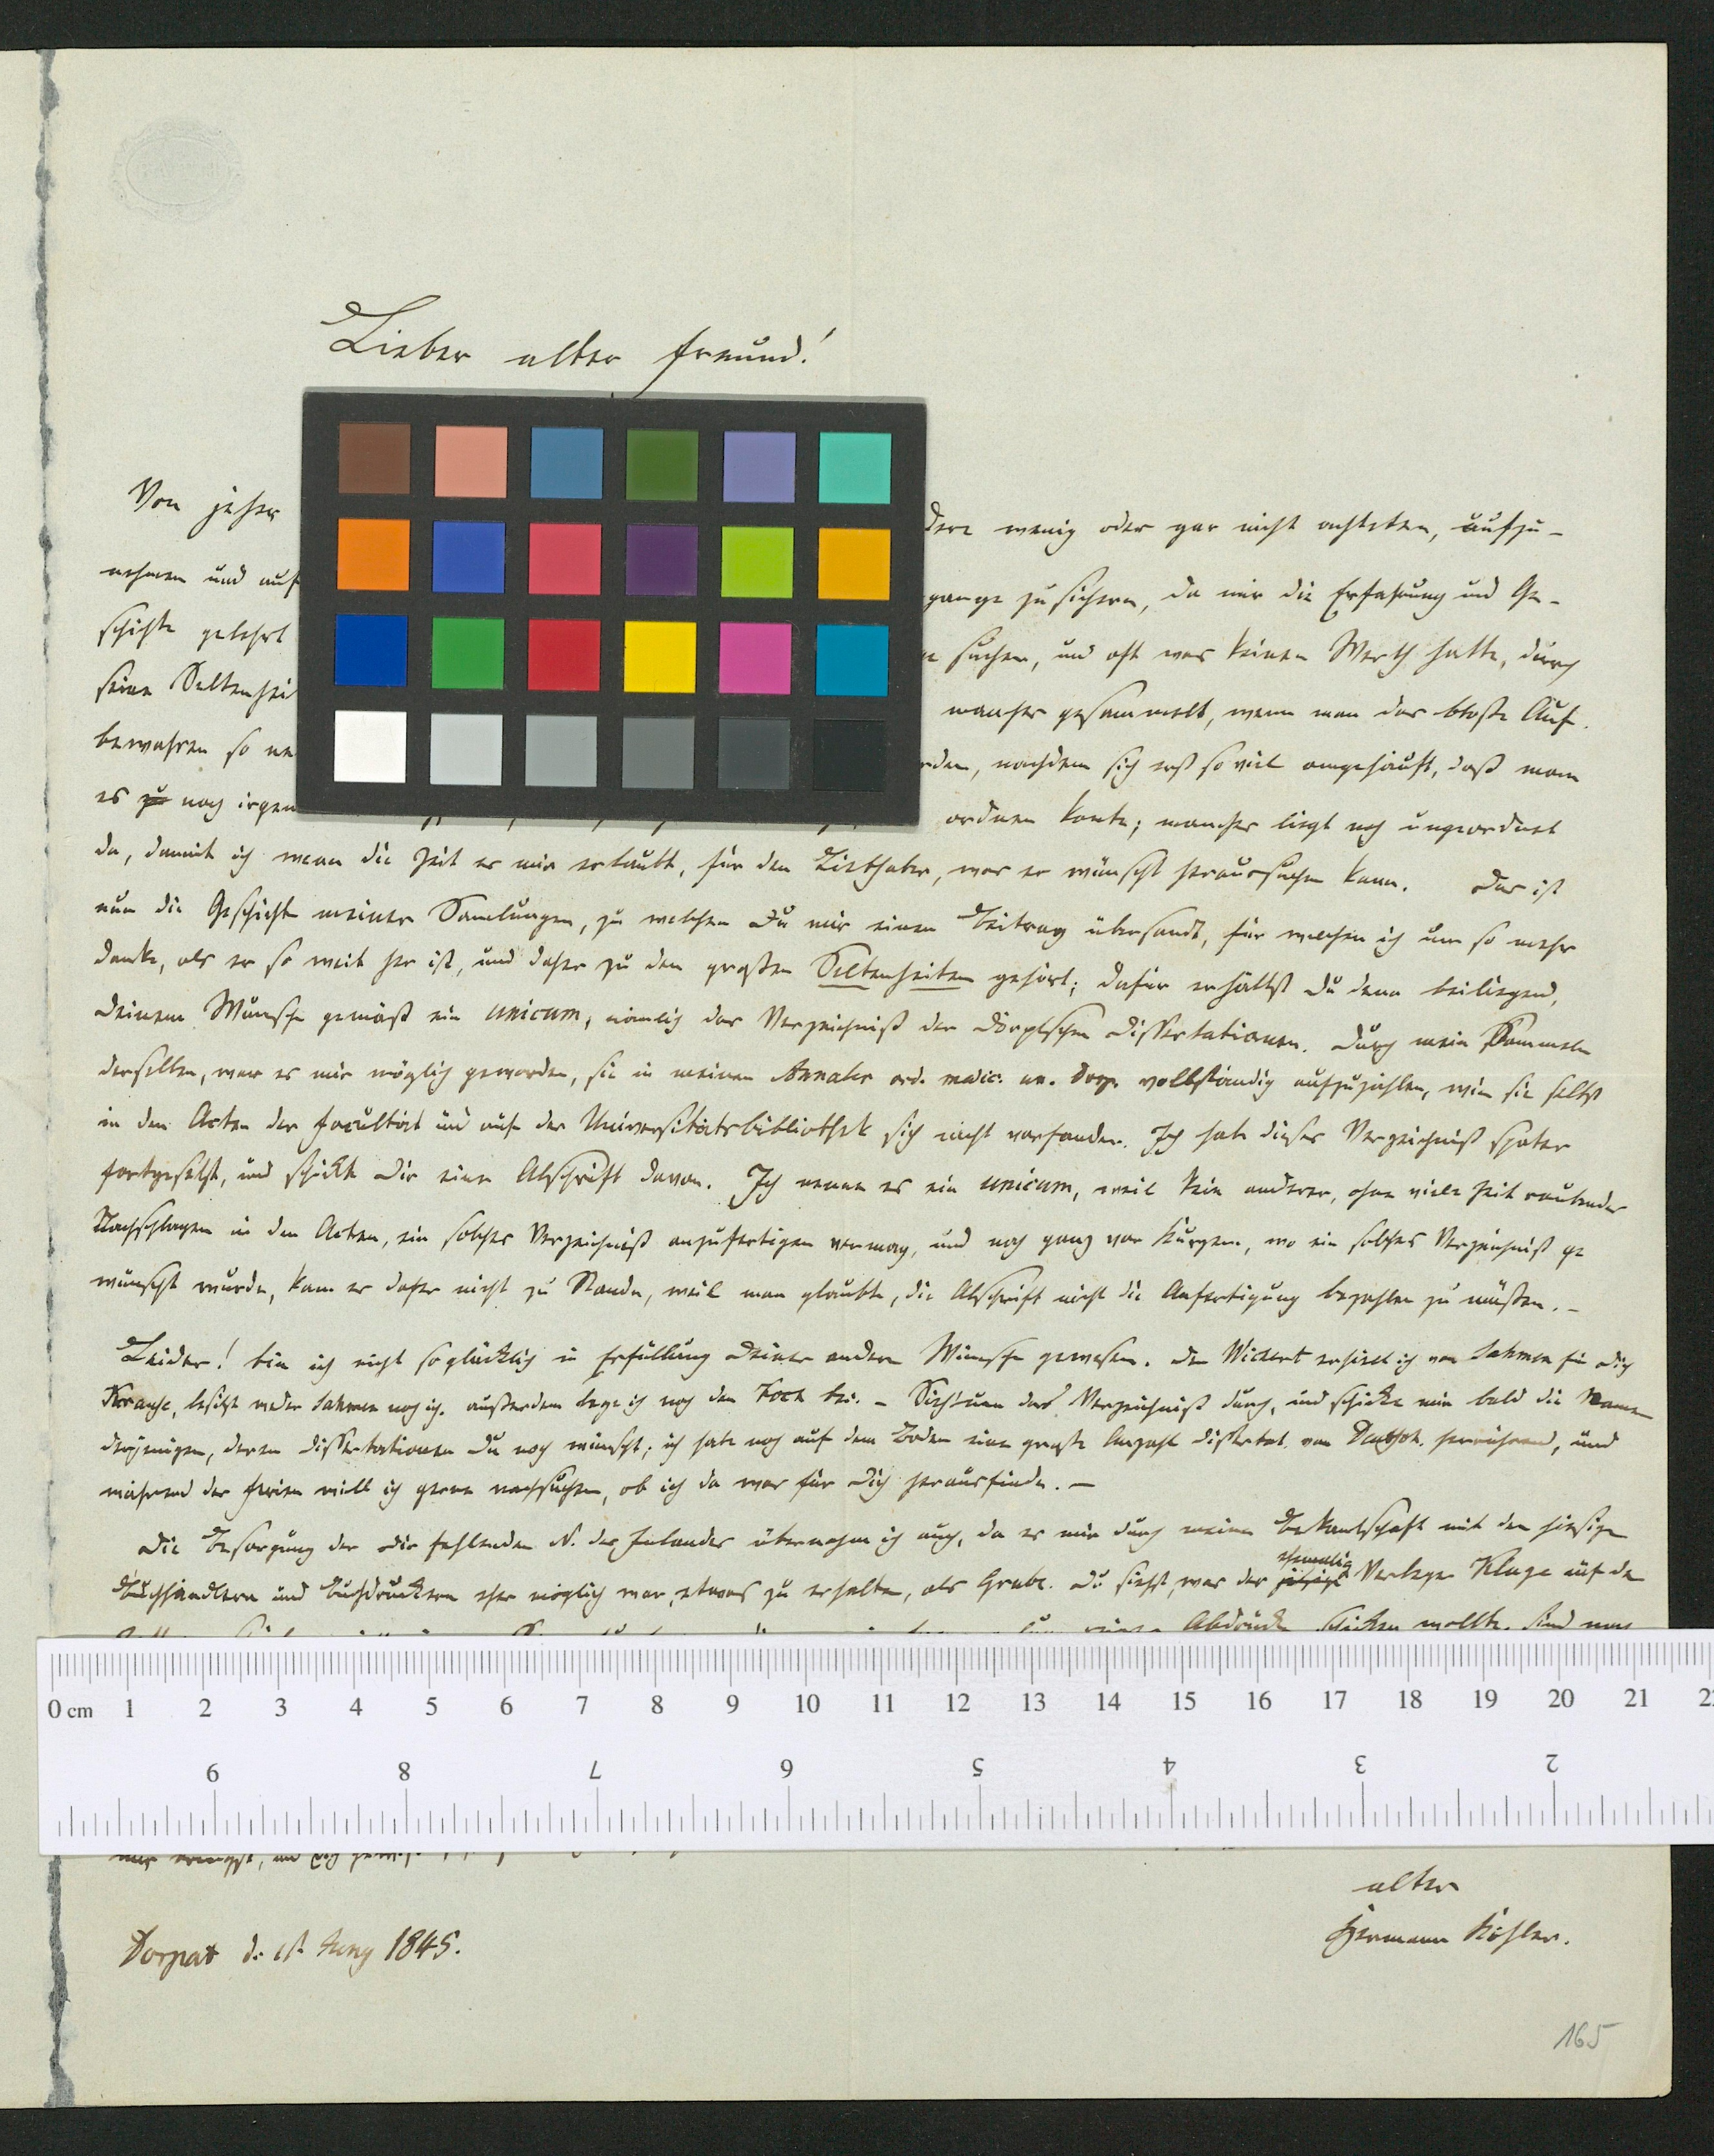 Lieber alter Freund!
Von jeher dere wenig oder gar nicht achteten, aufzu-
nehmen und auf gange zu sichern, da mir die Erfahrung und Ge-
schichte gelehrt suchen, und oft was keinen Werth hatte, durch
seine Seltenheit manches gesammelt, wenn man das bloße Auf-
bewahren so ne rden, nachdem sich erst so viel angehäuft, daß man
es noch irgen ordnen konte; manches liegt noch ungeordnet
da, damit ich wenn die Zeit es mir erlaubt, für den Liebhaber, was er wünscht heraussuchen kann. Das ist
nun die Geschichte meiner Samlungen, zu welchen Du mir einen Beitrag übersandt, für welchen ich um so mehr
danke, als er so weit her ist, und daher zu den großen Seltenheiten gehört; dafür erhältst Du denn beiliegend,
Deinem Wunsche gemäß ein unicum, nämlich das Verzeichniß der Dörptschen Dissertationen. Durch mein Sammeln
derselben, war es mir möglich geworden, sie in meinen Annales ord. medic. un. Dorp. vollständig aufzuzählen, wie sie selbst
in den Acten der Facultät und auf der Universitätsbibliothek sich nicht vorfanden. Ich habe dieses Verzeichniß später
fortgesetzt, und schicke Dir eine Abschrift davon. Ich nenne es ein unicum, weil kein anderer, ohne viele Zeit raubendes
Nachschlagen in den Acten, ein solches Verzeichniß anzufertigen vermag, und noch ganz vor Kurzem, wo ein solches Verzeichniß ge
wünscht wurde, kam es daher nicht zu Stande, weil man glaubte, die Abschrift nicht die Anfertigung bezahlen zu müßen. -
Leider! bin ich nicht so glücklich in Erfüllung Deiner andern Wünsche gewesen. Den Wichert erhielt ich von Sahmen für Dich
Krause, besitzt weder Sahmen noch ich. außerdem lege ich noch den Koch bei. - Sieh nun das Verzeichniß durch, und schicke mir bald die Namen
derjenigen, deren Dissertationen Du noch wünscht; ich habe noch auf dem Boden eine große Anzahl Dissertat. von herrührend, und
während der Ferien will ich gerne nachsuchen, ob ich da was für Dich herausfinde. -
Die Besorgung der Dir fehlenden N. des Inlandes übernahm ich auch, da es mir durch meine Bekantschaft mit den hiesigen
Buchhändlern und Buchdruckern eher möglich war, etwas zu erhalten, als Grube. Du siehst, was der ehemalig Verleger Kluge auf de
Abdrücke schicken wollte. sind
alter
Hermann Köhler.
Dorpat d. 1845.
165
0 cm 1 2 3 4 5 6 7 8 9 10 11 12 13 14 15 16 17 18 19 20 21 2
9 8 7 6 5 4 3 2